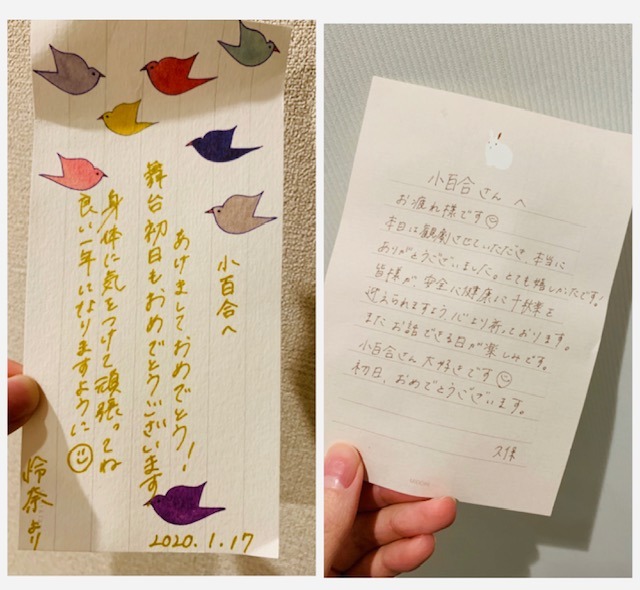 小百合へ
あけましておめでとう!
舞台初日もおめでとうございます
身体に気をつけて頑張ってね
良い一年になりますように
怜奈より
2020.1.17
小百合さんへ
お疲れ様です
本日は観劇させていただき、本当に
ありがとうございました。とても嬉しかったです!
皆様が安全に健康に千秋楽を
迎えられますよう心より祈っております。
またお話できる日が楽しみです。
小百合さん大好きです
初日、おめでとうございます。
久保
MIDORI